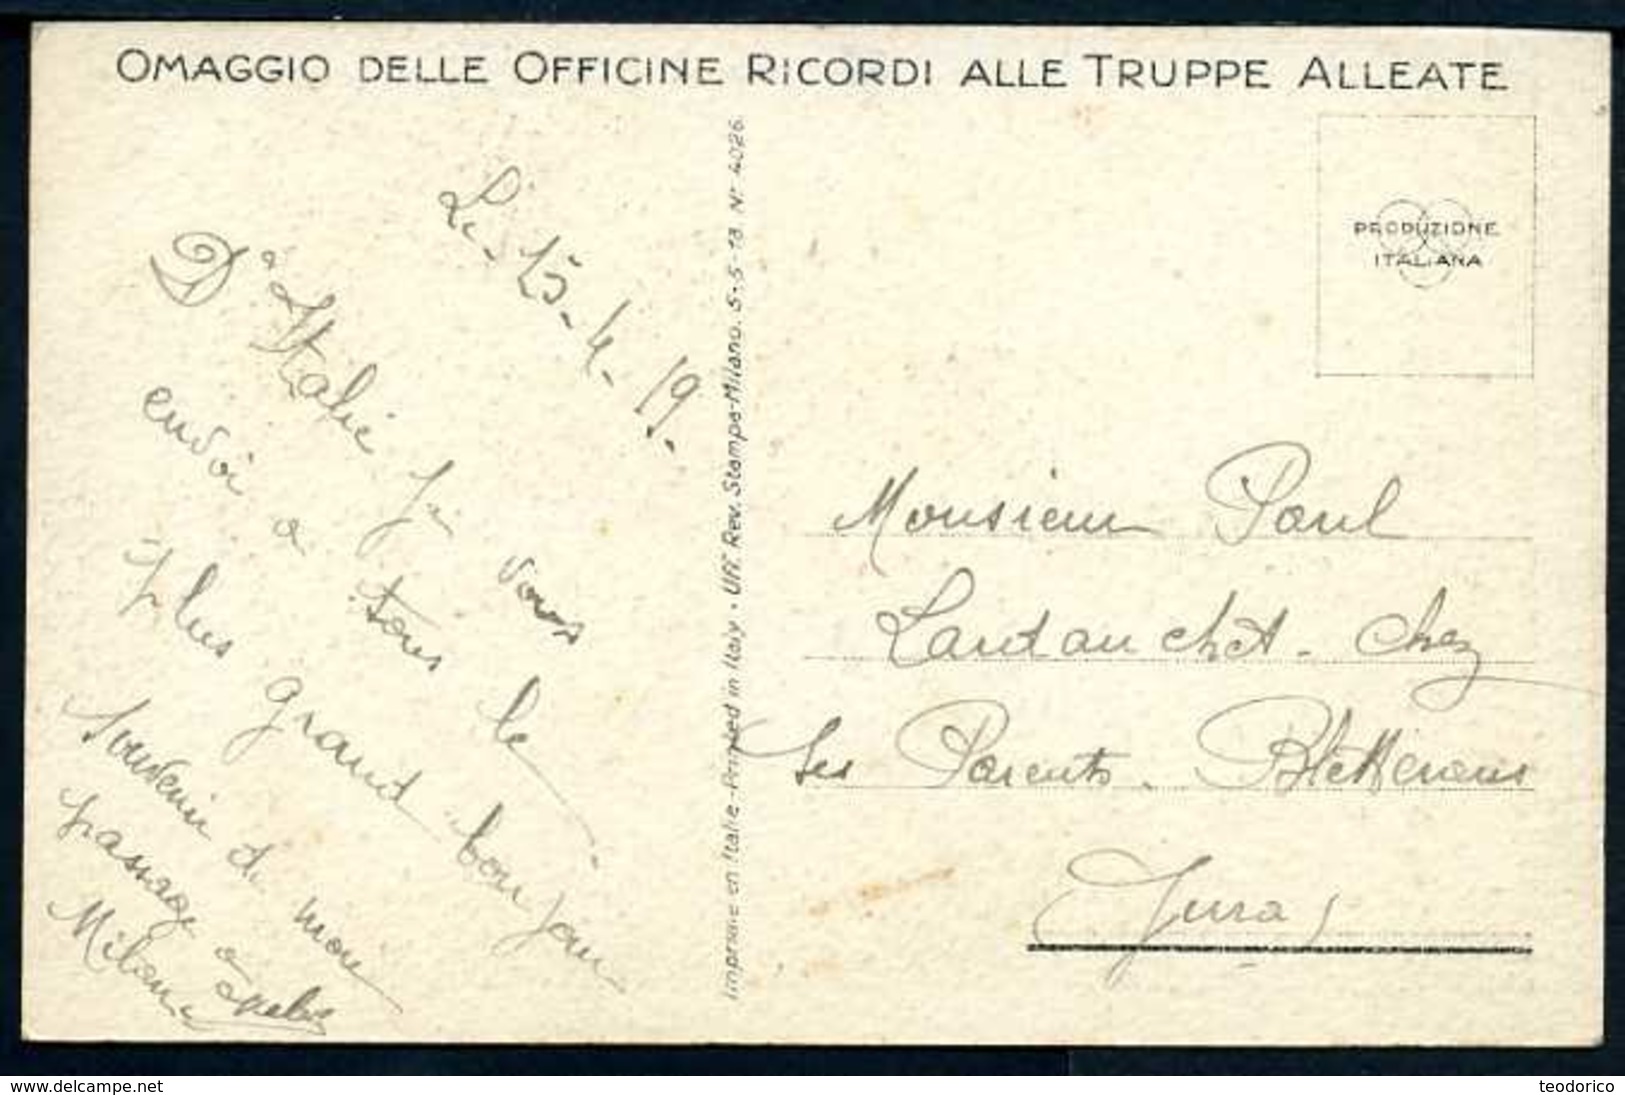 OMAGGIO DELLE OFFICINE RICORDI ALLE TRUPPE ALLEATE
Le 15-4-19.
D'Italie je vous
envoi a tous le
plus grand bonjour
Souvenir de mon
passage a
Milan
Imprimé en Italie - Printed in Italy • Uff. Rev. Stampa-Milano. 5-5-18. N° 4026.
PRODUZIONE
ITALIANA
Monsieur Paul
chez
Ses Parents. Bletterans
Jura
delcampe.net
teodorico